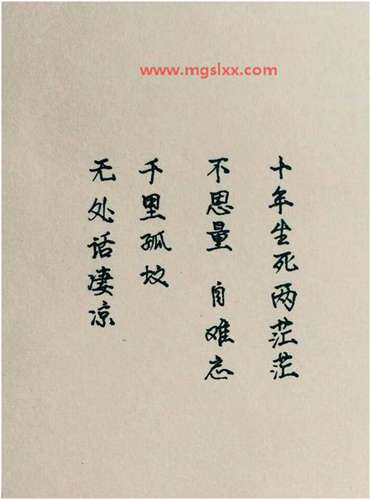 www.mgslxx.com
十年生死两茫茫
不思量 自难忘
千里孤坟
无处话凄凉